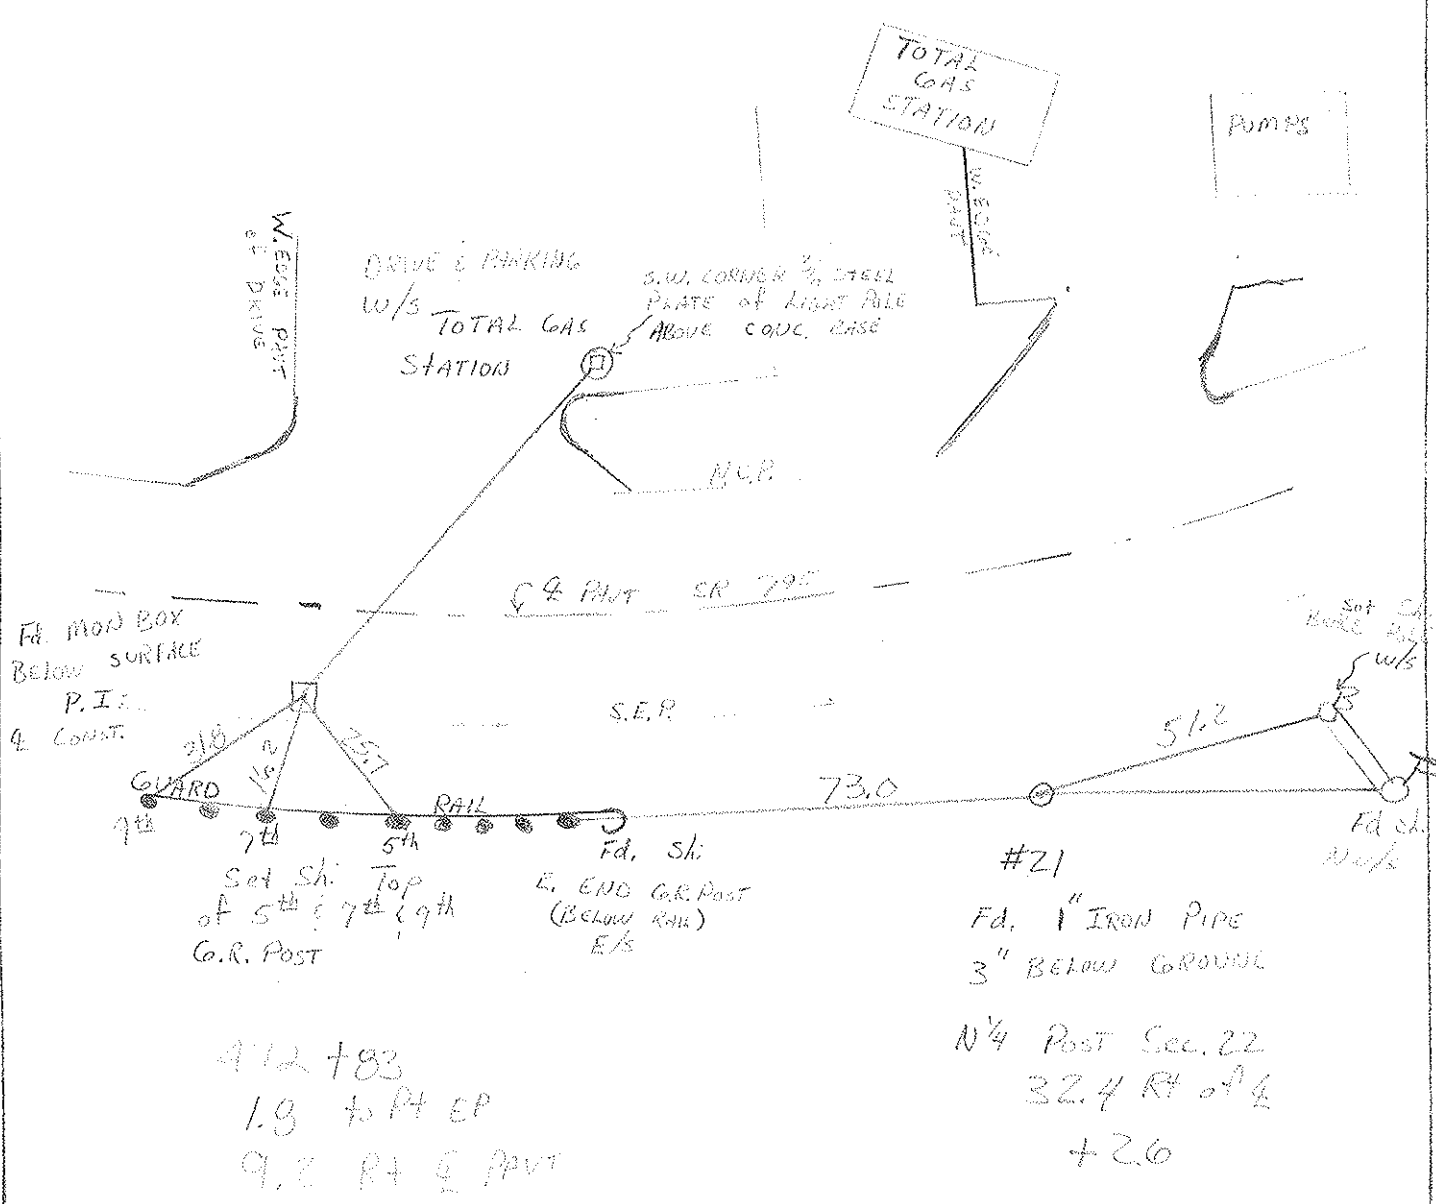 TOTAL
GAS
STATION
PUMPS
W. EDGE
PAVT
W. EDGE PAVT
of DRIVE
DRIVE & PARKING
W/S TOTAL GAS
STATION
S.W. CORNER STEEL
PLATE of LIGHT POLE
ABOVE CONC. BASE
N.E.P.
℄ PAVT SR 795
Fd. MON BOX
BELOW SURFACE
P.I.
℄ CONST.
S.E.P.
Set
W/S
51.2
21.8
15.2
25.7
73.0
GUARD
RAIL
9th
7th
5th
Set Sh. Top
of 5th & 7th & 9th
G.R. POST
Fd. Sh.
E. END G.R. POST
(BELOW RAIL)
E/S
Fd Sh.
NW/S
#21
Fd. 1" IRON PIPE
3" BELOW GROUND
N 1/4 POST Sec. 22
32.4 Rt of ℄
+26
+83
1.8 to Rt EP
9.2 Rt ℄ PAVT